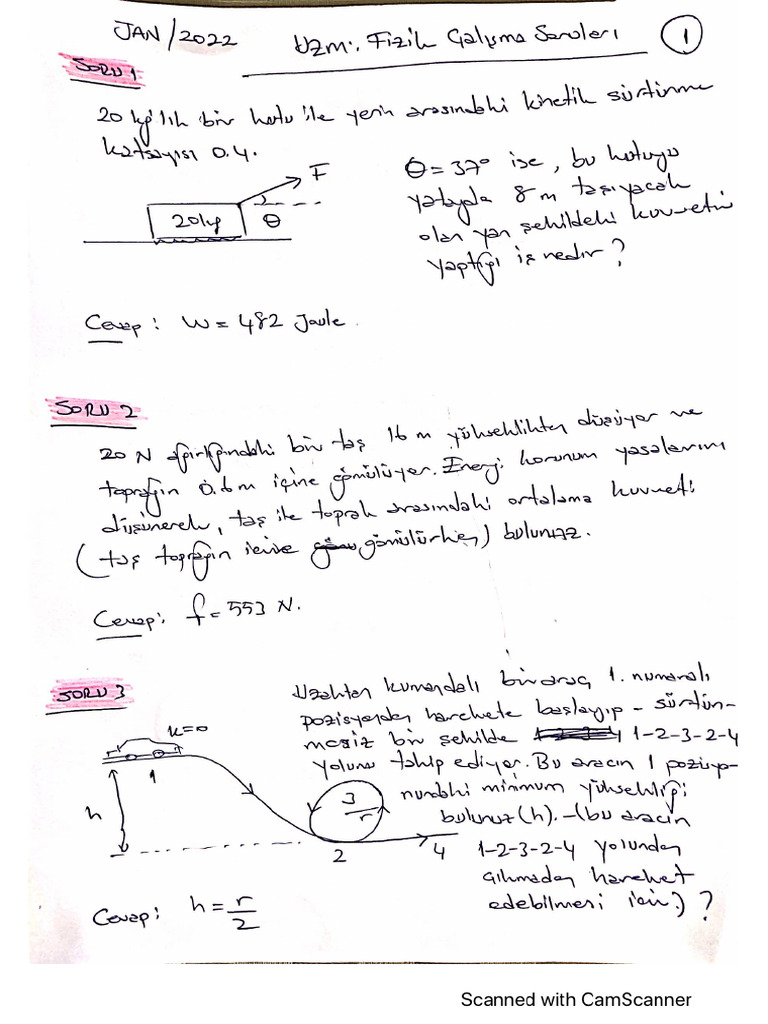 JAN/2022 Uzm. Fizik Çalışma Soruları 1
SORU 1
20 kg'lık bir kutu ile yerin arasındaki kinetik sürtünme
katsayısı 0.4.
θ = 37° ise, bu kutuyu
yatayda 8 m taşıyacak
olan yan şekildeki kuvvetin
yaptığı iş nedir?
F
20kg θ
Cevap: W = 482 Joule.
SORU 2
20 N ağırlığındaki bir taş 16 m yükseklikten düşüyor ve
toprağın 0.6m içine gömülüyor. Enerji korunum yasalarını
düşünerek, taş ile toprak arasındaki ortalama kuvveti
(taş toprağın içine gömülürken) bulunuz.
Cevap: f = 553 N.
SORU 3
Uzaktan kumandalı bir araç 1. numaralı
pozisyondan harekete başlayıp - sürtün-
mesiz bir şekilde 1-2-3-2-4
yolunu takip ediyor. Bu aracın 1 pozisyo-
nundaki minimum yüksekliği
bulunuz (h). - (bu aracın
1-2-3-2-4 yolundan
çıkmadan hareket
edebilmesi için.) ?
k=0
1
h
3
r
2
4
Cevap: h = r/2
Scanned with CamScanner